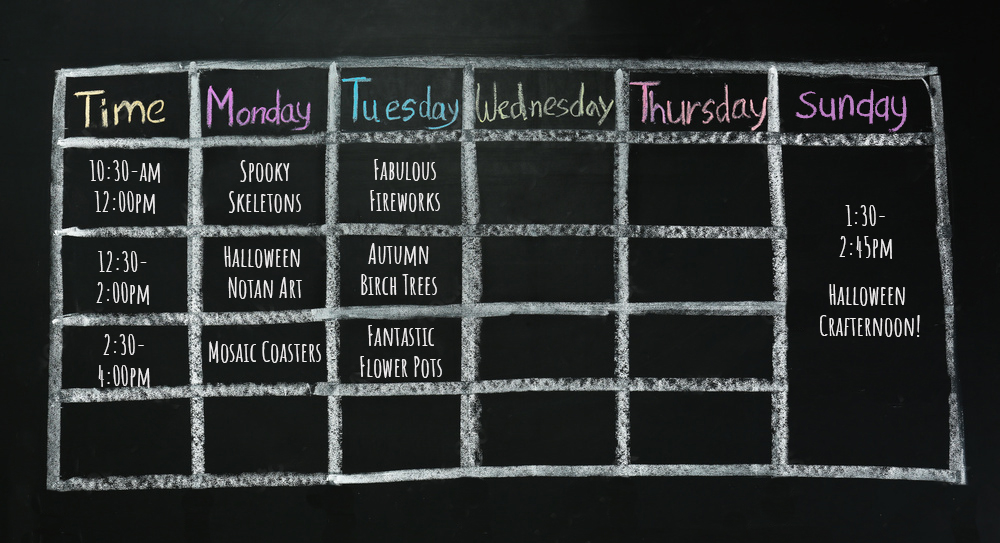 Time Monday Tuesday Wednesday Thursday Sunday
10:30-am
12:00pm
Spooky
Skeletons
Fabulous
Fireworks
12:30-
2:00pm
Halloween
Notan Art
Autumn
Birch Trees
2:30-
4:00pm
Mosaic Coasters
Fantastic
Flower Pots
1:30-
2:45pm
Halloween
Crafternoon!